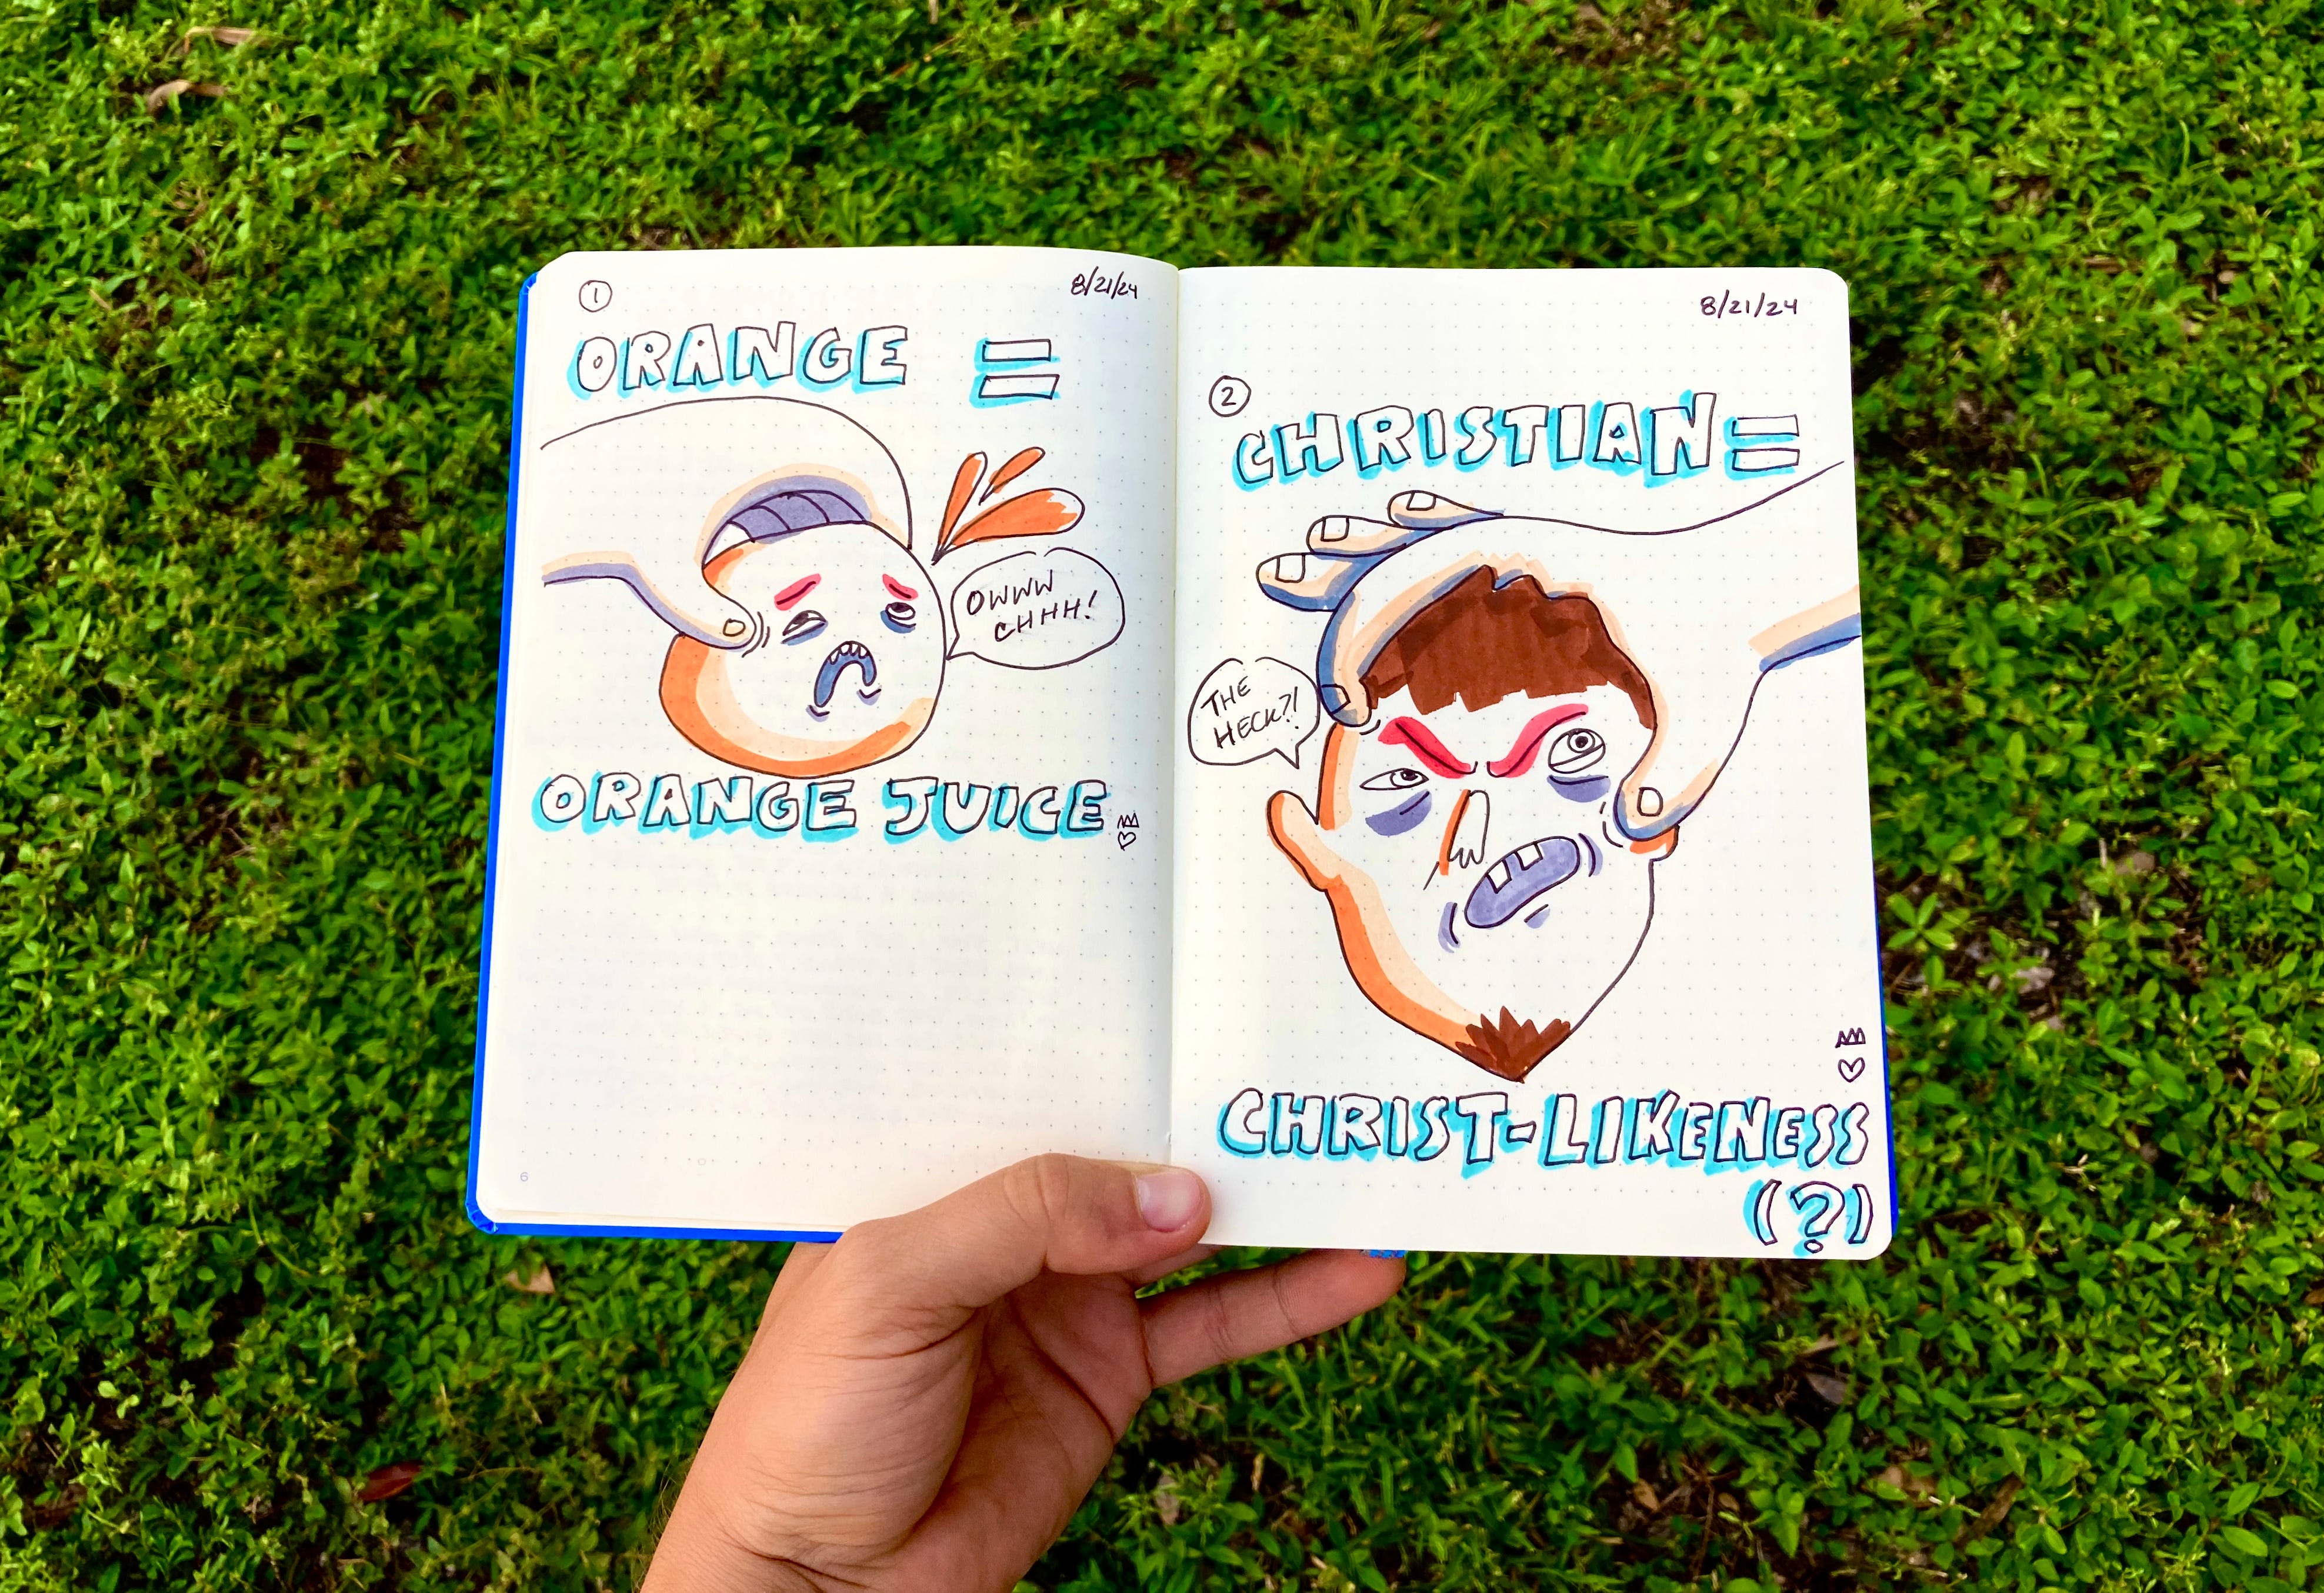 1
8/21/24
ORANGE =
OWWW
CHHH!
ORANGE JUICE
6
8/21/24
2
CHRISTIAN =
THE
HECK?!
CHRIST-LIKENESS
(?)